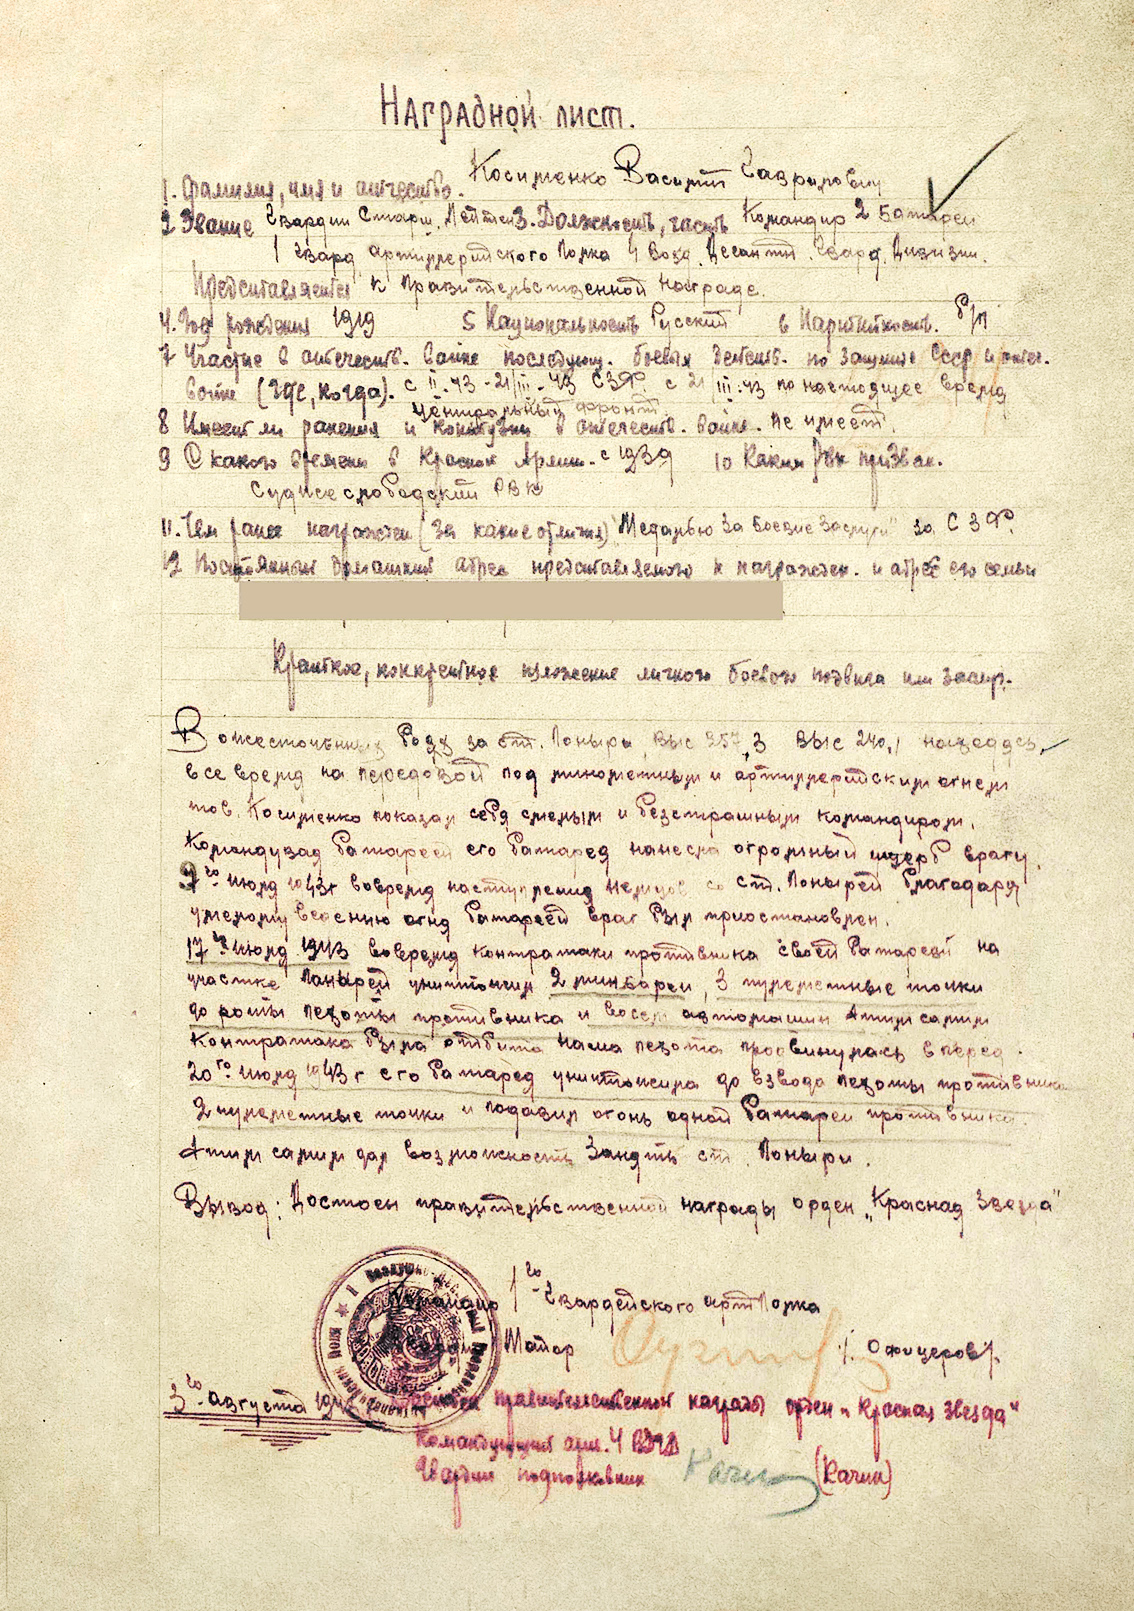 Наградной лист.
1. Фамилия, имя и отчество. Косименко Василий Гаврилович
2 Звание Гвардии Старш. Лейтен 3. Должность, часть Командир 2 Батареи
1 Гвард. Артиллерийского Полка 4 Возд. Десантн. Гвард. Дивизии.
Представляется к правительственной награде.
4. Год рождения 1919 5 Национальность Русский 6 Партийность. Б/П
7 Участие в отечеств. войне последующ. боевых действ. по защите СССР и отеч.
войне (где, когда). с II.43 - 21/III - 43 СЗФ. с 21 III.43 по настоящее время
Центральный фронт
8 Имеет ли ранения и контузии в отечеств. войне. Не имеет.
9 С какого времени в Красной Армии. с 1939 10 Каким РВК призван.
слободский РВК
11. Чем ранее награжден (за какие отличия) "Медалью За Боевые Заслуги" за СЗФ.
12 Постоянный домашний адрес представляемого к награжден. и адрес его семьи
Краткое, конкретное изложение личного боевого подвига или заслуг.
В ожесточенных боях за ст. Поныри, выс 257,3 выс 240,1 находясь
все время на передовой под минометным и артиллерийским огнем
тов. Косименко показал себя смелым и безстрашным командиром.
Командовая батареей его батарея нанесла огромный ущерб врагу.
9го июля 1943г вовремя наступления немцев со ст. Понырей благодаря
умелому ведению огня батареей враг был приостановлен.
17го июля 1943 вовремя контратаки противника своей батареей на
участке Понырей уничтожил 2 минбареи, 3 пулеметные точки
до роты пехоты противника и восем автомашин Этим самым
контратака была отбита наша пехота продвинулась вперед.
20го июля 1943г его батарея уничтожила до взвода пехоты противника
2 пулеметные точки и подавил огонь одной батареи противника.
Этим самым дал возможность Занять ст. Поныри.
Вывод: Достоен правительственной награды орден "Красная Звезда"
1го Гвардейского артПолка
Майор /Офицеров/.
3го августа правительственной награды орден "Красная звезда"
Командующий арт. 4 ВДГД
Гвардии подполковник (Качин)